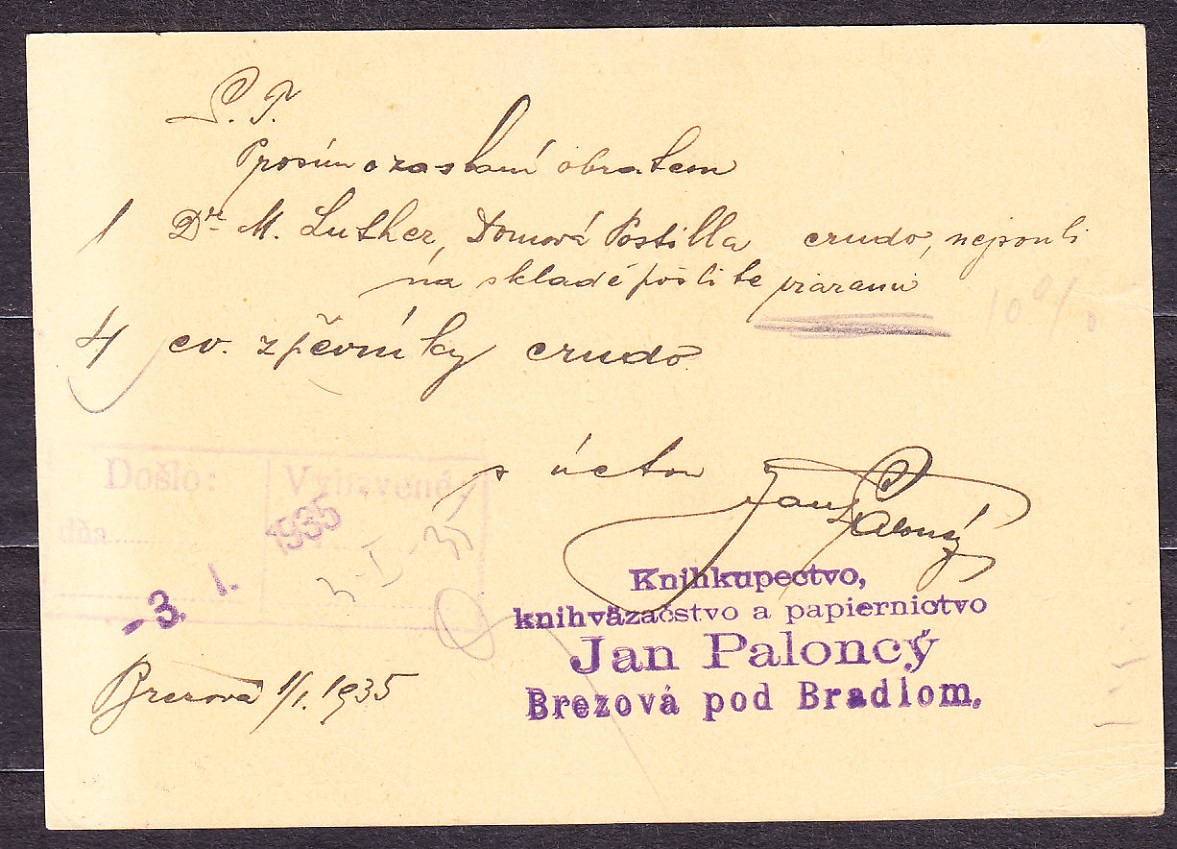 P. T.
Prosím o zaslaní obratem
1 Dr. M. Luther, Domová Postilla crudo, nejsouli
na skladě pošlite viazanú
10%
4 ev. zpěvníky crudo
s úctou Jan Paloncý
Došlo: Vybavené:
dňa
1935
- 3. I.
Knihkupectvo,
knihväzačstvo a papiernictvo
Jan Paloncý
Brezová pod Bradlom.
Brezová 1/I. 1935